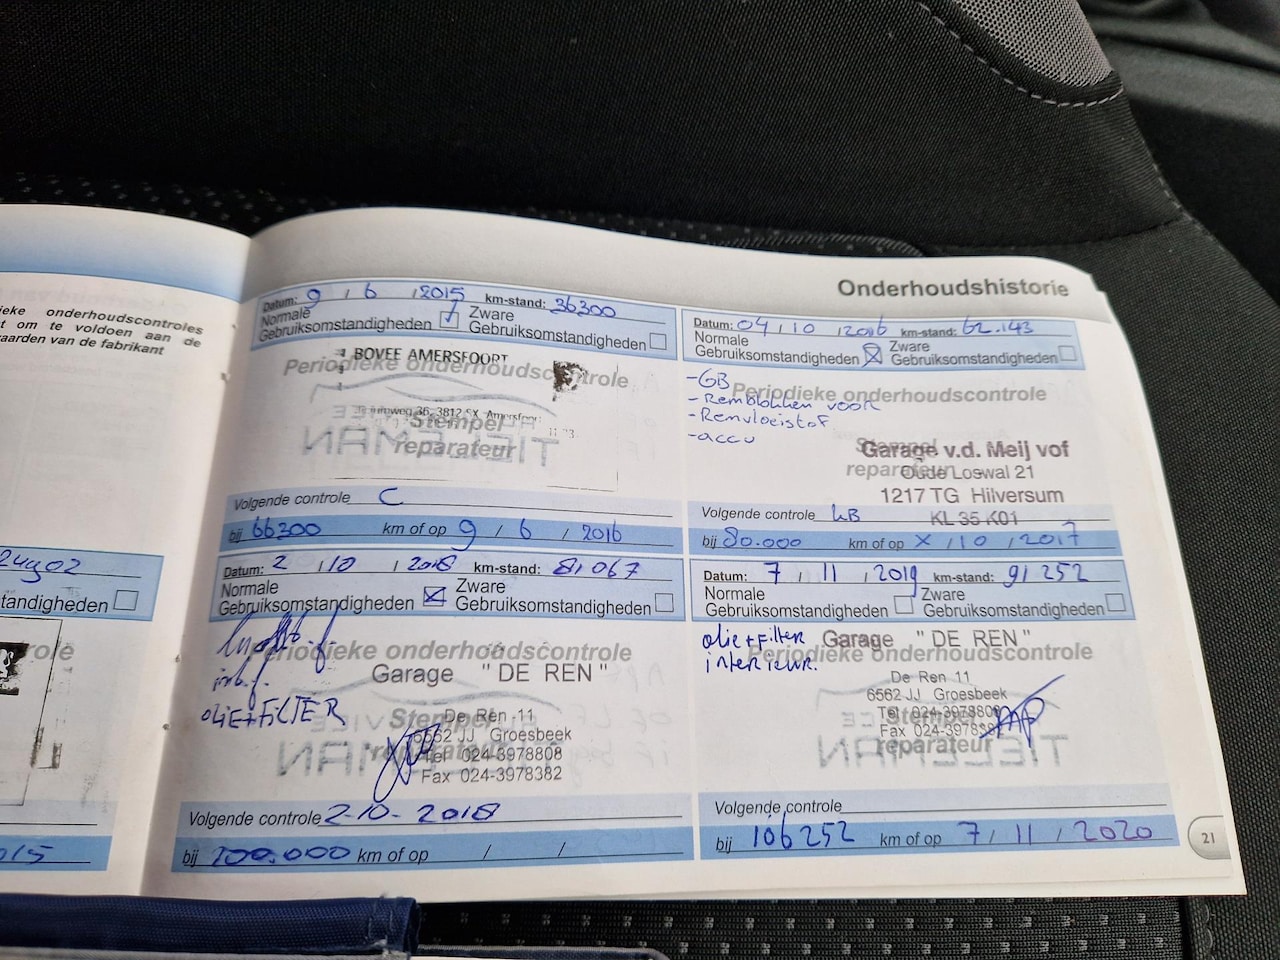 ieke onderhoudscontroles
t om te voldoen aan de
aarden van de fabrikant
tandigheden
015
Onderhoudshistorie
Datum: 9 / 6 / 2015 km-stand: 36300
Normale Gebruiksomstandigheden Zware Gebruiksomstandigheden
BOVEE AMERSFOORT
Periodieke onderhoudscontrole
36, 3812 SX Amersfoor
Stempel
TIELEMAN
reparateur
Volgende controle C
bij 66300 km of op 9 / 6 / 2016
Datum: 04 / 10 / 2016 km-stand: 62.143
Normale Gebruiksomstandigheden Zware Gebruiksomstandigheden
-GB
Periodieke onderhoudscontrole
- Remblokken voor
- Remvloeistof
-accu
Stempel
Garage v.d. Meij vof
reparateur
Oude Loswal 21
1217 TG Hilversum
KL 35 K01
Volgende controle
bij 80.000 km of op X / 10 / 2017
Datum: 2 / 10 / 2018 km-stand: 81067
Normale Gebruiksomstandigheden Zware Gebruiksomstandigheden
Periodieke onderhoudscontrole
Garage "DE REN"
OLIE+FILTER
Stempel
De Ren 11
6562 JJ Groesbeek
reparateur
Tel 024-3978808
TIELEMAN
Fax 024-3978382
Volgende controle 2-10-2018
bij 100.000 km of op / /
Datum: 7 / 11 / 2019 km-stand: 91252
Normale Gebruiksomstandigheden Zware Gebruiksomstandigheden
olie+Filter
interieur.
Garage "DE REN"
Periodieke onderhoudscontrole
De Ren 11
6562 JJ Groesbeek
Stempel
Tel 024-3978808
Fax
reparateur
TIELEMAN
Volgende controle
bij 106252 km of op 7 / 11 / 2020
21